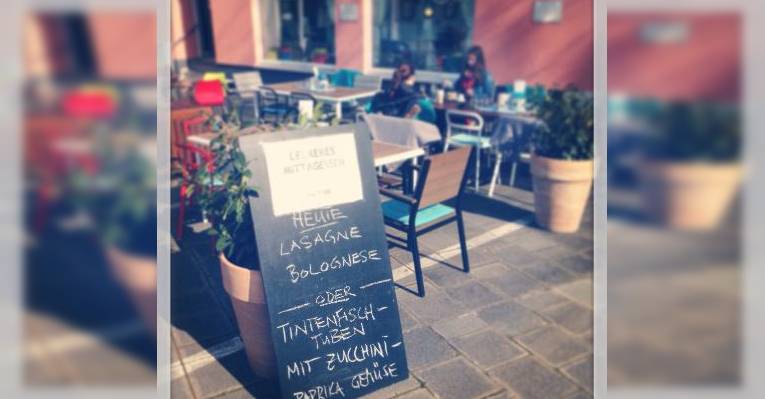 LECKERES
MITTAGESSEN
HEUTE
LASAGNE
BOLOGNESE
— ODER —
TINTENFISCH-
TUBEN
MIT ZUCCHINI-
PAPRIKA GEMÜSE